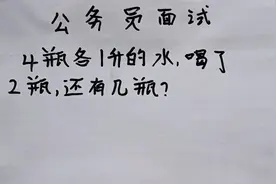 公务员面试
4瓶各1升的水,喝了
2瓶,还有几瓶?